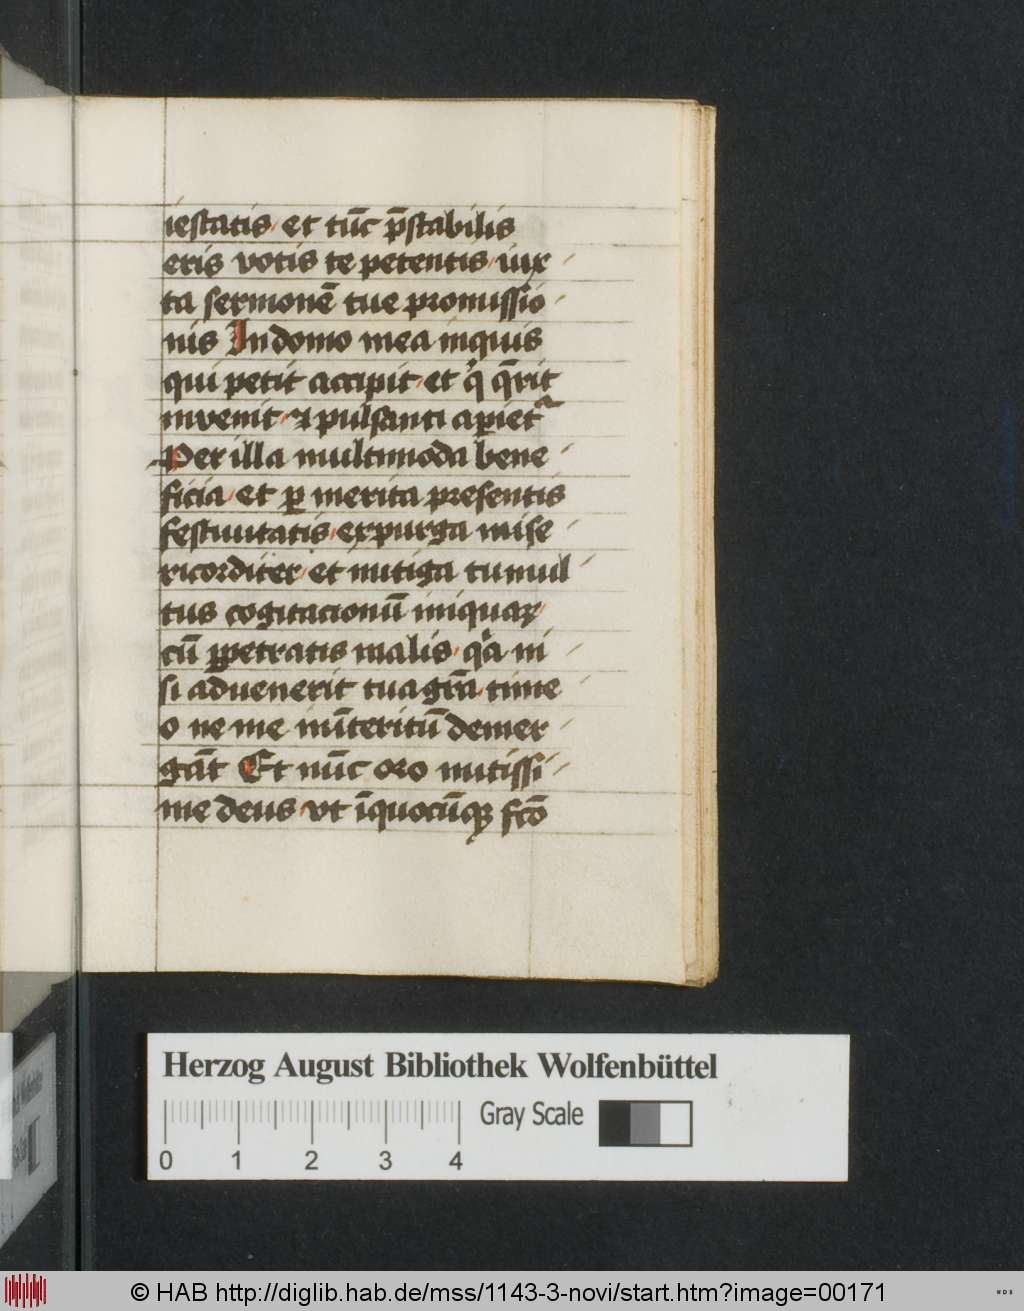 iestatis et tūc p̄stabilis
eris votis te petentis iux
ta sermonē tue promissio
nis In domo mea inquis
qui petit accipit et qͥ q̄rit
invenit ⁊ pulsanti aꝑiet᷑
Per illa multimoda bene
ficia et ꝑ merita presentis
festiuitatis expurga mise
ricorditer et mitiga tumul
tus cogitacionū iniquaꝝ
cū ꝑpetratis malis qͥa ni
si advenerit tua gr̄a time
o ne me in̄teritū demer
gāt Et nūc oro mitissi
me deus vt ī quocūqꝫ fcō
Herzog August Bibliothek Wolfenbüttel
Gray Scale
0 1 2 3 4
© HAB http://diglib.hab.de/mss/1143-3-novi/start.htm?image=00171